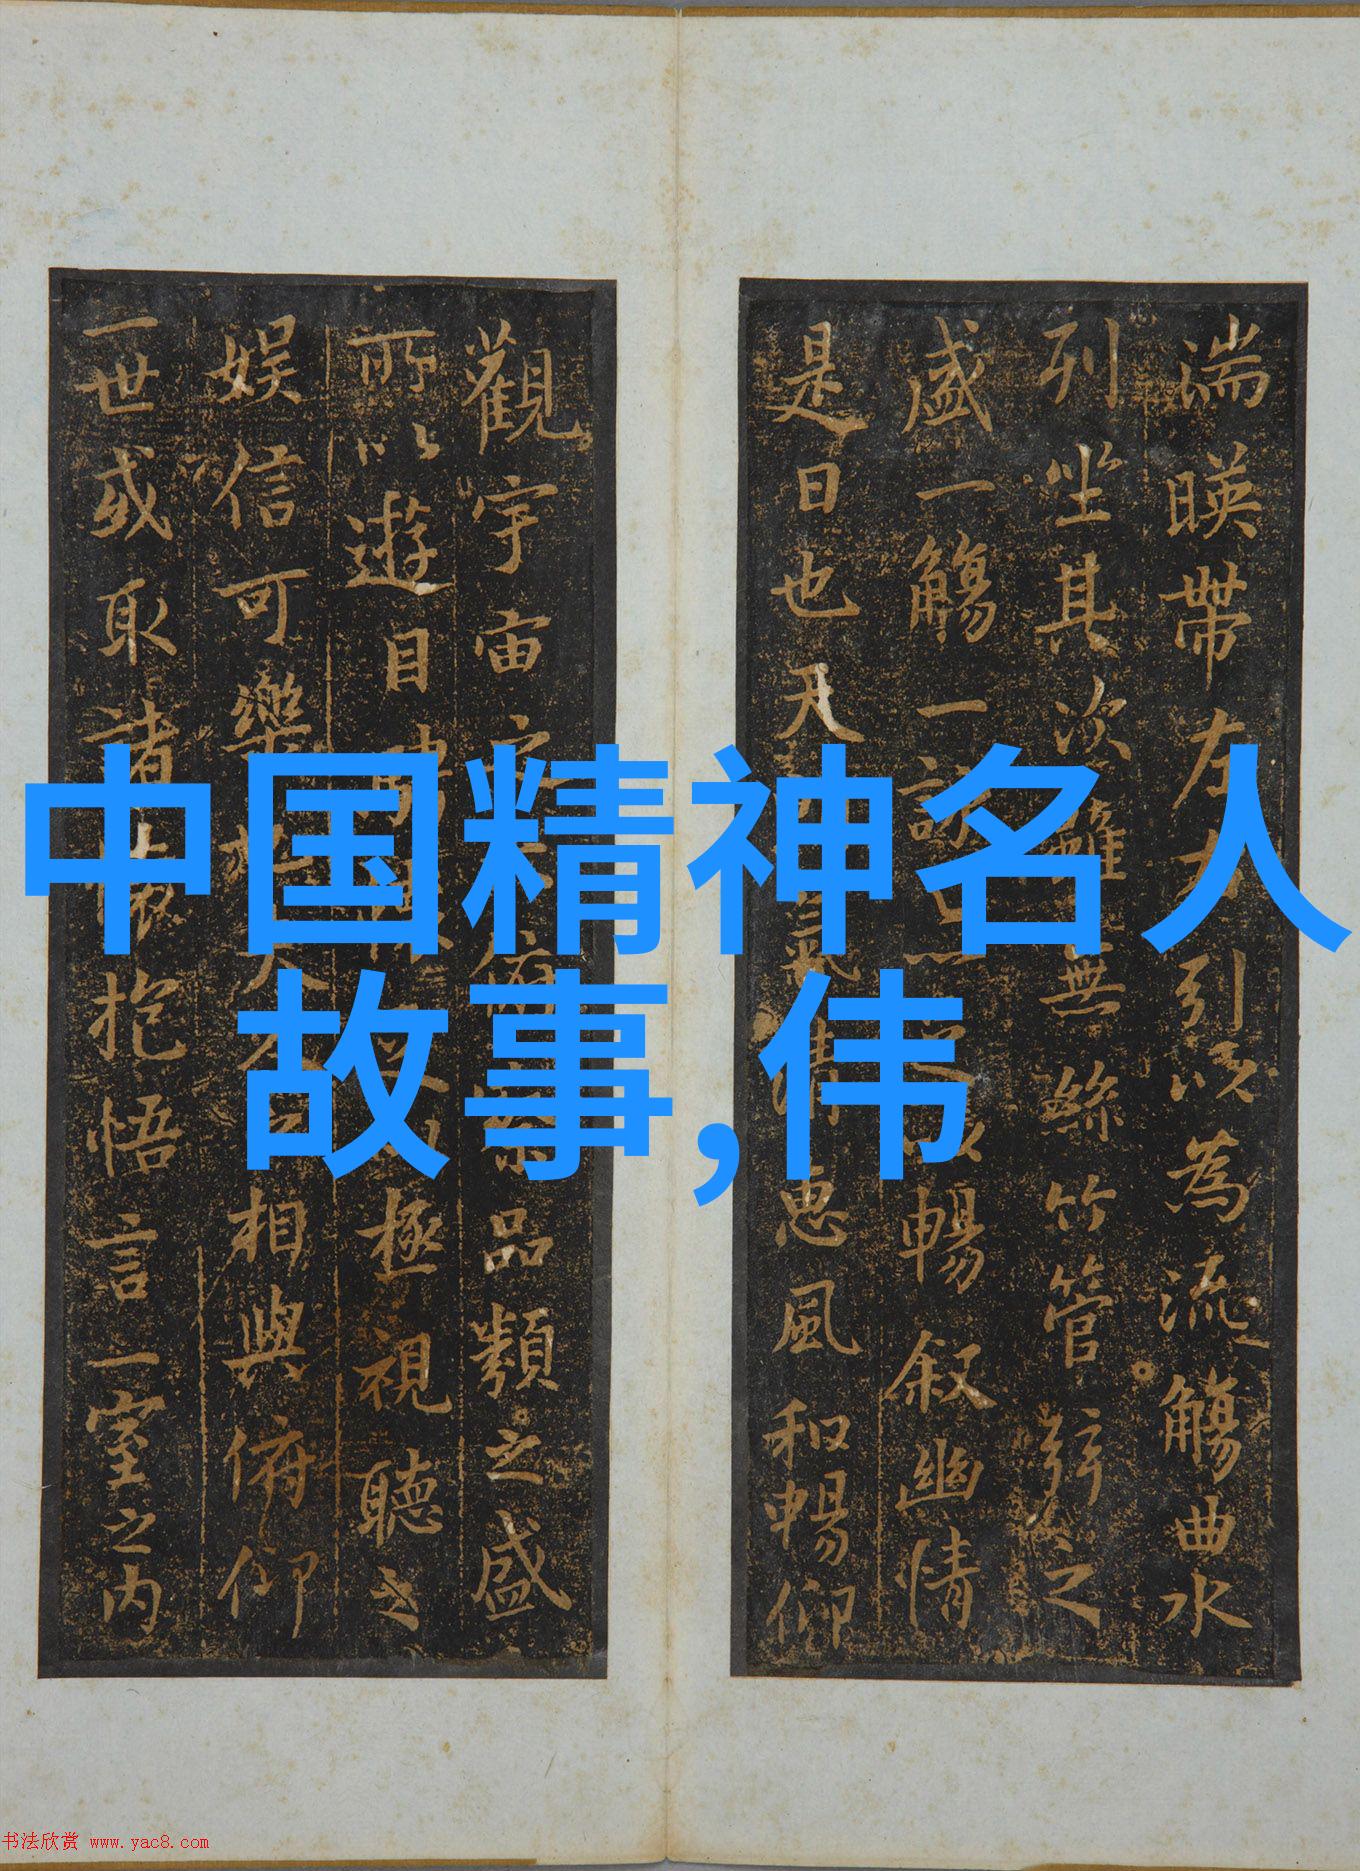 湍暎帶左右引以為流觴曲水
列坐其次雖無絲竹管弦之
盛一觴一詠暢叙幽情
是日也天氣清惠風和暢仰
觀宇宙之俯品類之盛
所以遊目騁極視聽之
娛信可樂也夫相與俯仰
一世或取諸懷抱悟言一室之内
中国精神名人
故事,伟
书法欣赏 www.yac8.com